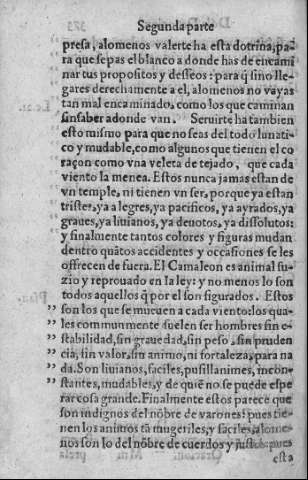 Segunda parte
presa, alomenos valerte ha esta dotrina, pa
ra que sepas el blanco a donde has de encami
nar tus propositos y desseos: para q̃ sino lle-
gares derechamente a el, alomenos no vayas
tan mal encaminado, como los que caminan
sin saber adonde van. Seruirte ha tambien
esto mismo para que no seas del todo lunati-
co y mudable, como algunos que tienen el co
raçon como vna veleta de tejado, que cada
viento la menea. Estos nunca jamas estan de
vn temple, ni tienen vn ser, porque ya estan
tristes, ya alegres, ya pacificos, ya ayrados, ya
graues, ya liuianos, ya deuotos, ya dissolutos:
y finalmente tantos colores y figuras mudan
dentro quãtos accidentes y occasiones se les
offrecen de fuera. El Camaleon es animal su-
zio y reprouado en la ley: y no menos lo son
todos aquellos q̃ por el son figurados. Estos
son los que se mueuen a cada viento: los qua-
les communmente suelen ser hombres sin e-
stabilidad, sin grauedad, sin peso, sin pruden
cia, sin valor, sin animo, ni fortaleza, para na
da. Son liuianos, faciles, pusillanimes, incon-
stantes, mudables, y de quiẽ no se puede espe
rar cosa grande. Finalmente estos parece que
son indignos del nõbre de varones: pues tie-
nen los animos tã mugeriles, y faciles, alome-
nos son lo del nõbre de cuerdos y justos: pues
esta